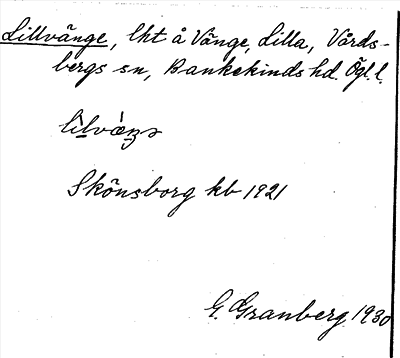 Lillvänge, lht å Vänge, Lilla, Vårds-
bergs sn, Bankekinds hd. Ögl. l.
Skönsborg kb 1921
G. Granberg 1930